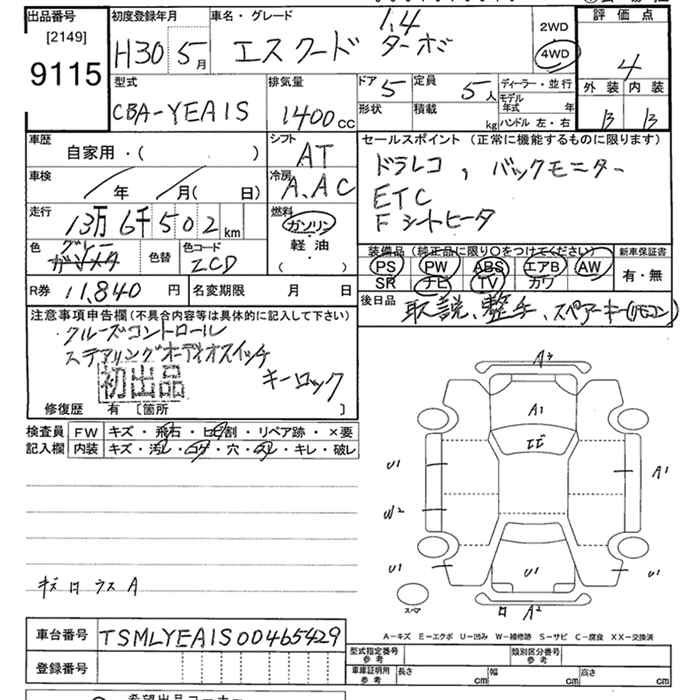 出品番号
[2149]
9115
初度登録年月
H30 5月
車名・グレード
1.4
エスクード ターボ
2WD
4WD
評価点
4
外装 内装
B B
型式
CBA-YEA1S
排気量
1400cc
ドア 5
定員 5人
形状
積載 kg
ディーラー・並行
モデル年式 年
ハンドル 左・右
車歴
自家用・( )
シフト
AT
セールスポイント (正常に機能するものに限ります)
ドラレコ, バックモニター
ETC
Fシートヒータ
車検
年 月( 日)
冷房
A.AC
走行
13万6千502km
燃料
ガソリン
軽油
( )
色
グレー
色替
色コード
ZCD
装備品 (純正品に限り○をつけてください)
PS PW ABS エアB AW
SR ナビ TV カワ
新車保証書
有・無
R券 11,840円
名変期限 月 日
後日品
取説、整手、スペアーキー(リモコン)
注意事項申告欄(不具合内容等は具体的に記入して下さい)
クルーズコントロール
ステアリングオーディオスイッチ
初出品
キーロック
修復歴 有 [箇所 ]
検査員 FW キズ・飛石・ヒビ割・リペア跡・×要
記入欄 内装 キズ・汚レ・コゲ・穴・スレ・キレ・破レ
A3
A1
U1
A1
W2
U1
U1
U1
スペア
A2
A-キズ E-エクボ U-凹み W-補修跡 S-サビ C-腐食 XX-交換済
車台番号 TSMLYEA1S00465429
登録番号
型式指定番号
参考
類別区分番号
参考
車庫証明用
参考
長さ cm
幅 cm
高さ cm
希望出品コーナー